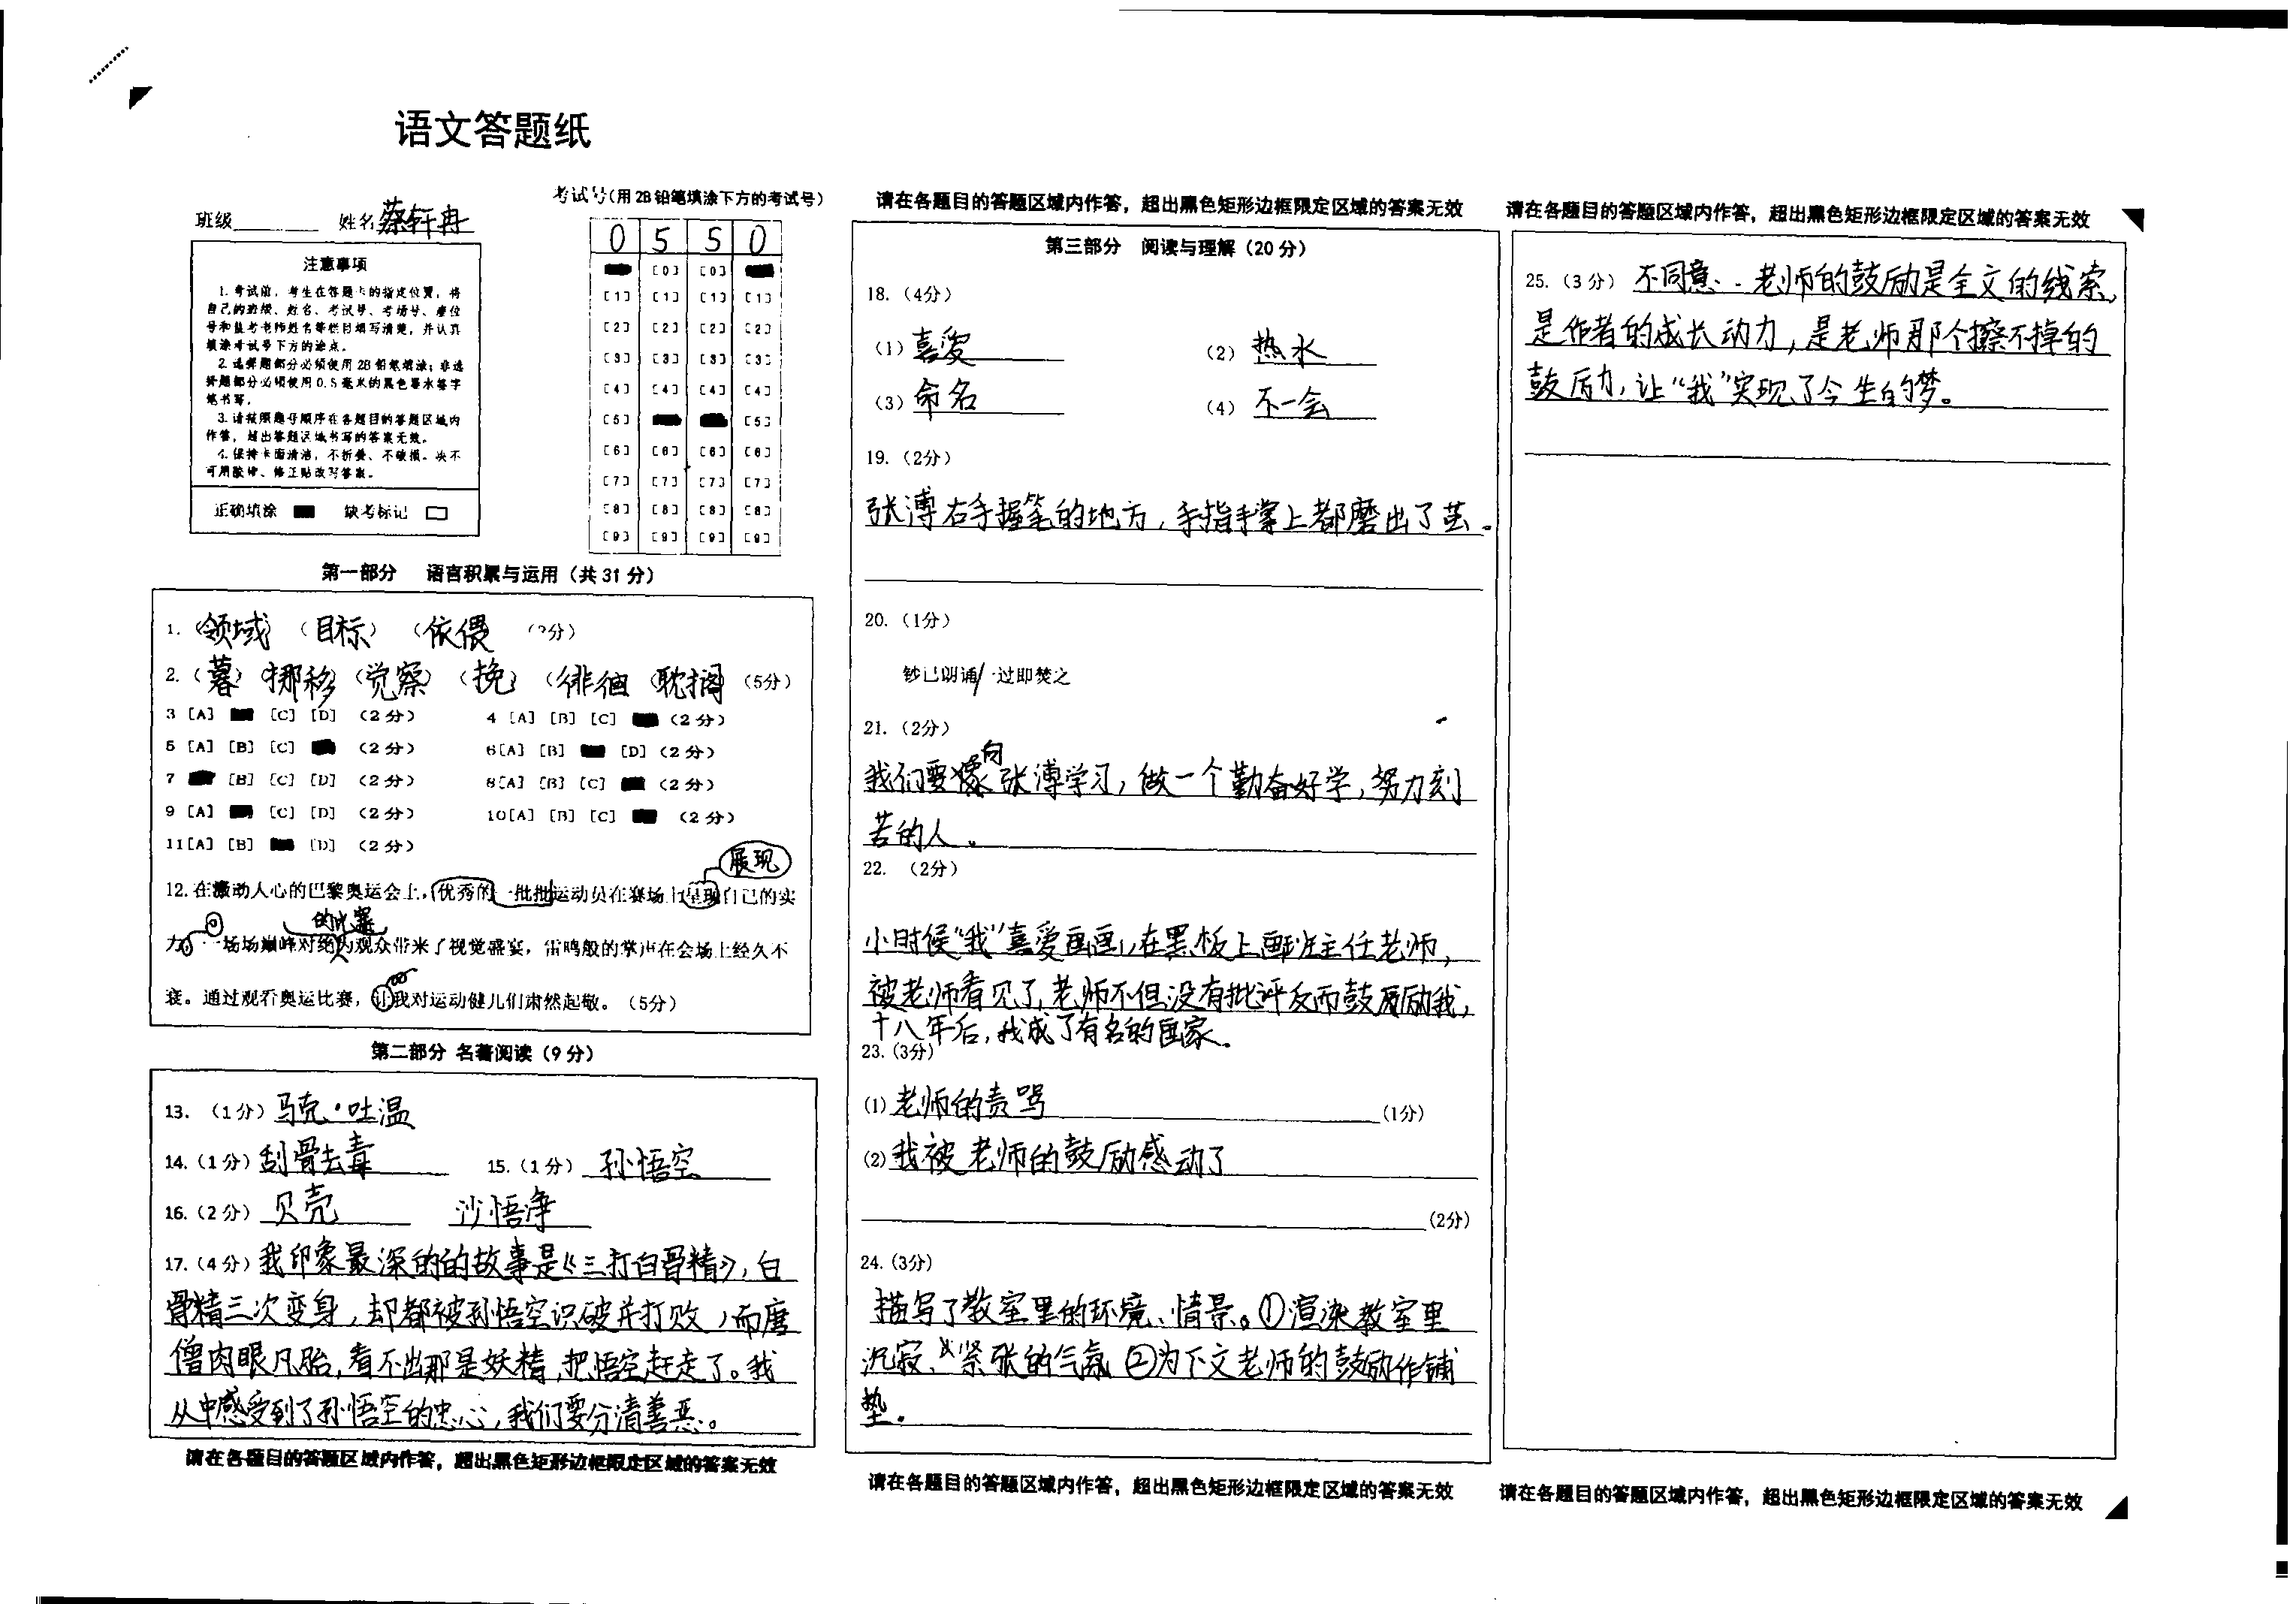 语文答题纸
班级 姓名 蔡轩冉
考试号(用2B铅笔填涂下方的考试号)
0 5 5 0
[0] [0]
[1] [1] [1] [1]
[2] [2] [2] [2]
[3] [3] [3] [3]
[4] [4] [4] [4]
[5] [5]
[6] [6] [6] [6]
[7] [7] [7] [7]
[8] [8] [8] [8]
[9] [9] [9] [9]
注意事项
1.考试前,考生在答题卡的指定位置,将
自己的班级、姓名、考试号、考场号、座位
号和监考老师姓名等栏目填写清楚,并认真
填涂考试号下方的涂点。
2.选择题部分必须使用2B铅笔填涂;非选
择题部分必须使用0.5毫米的黑色墨水签字
笔书写。
3.请按照题号顺序在各题目的答题区域内
作答,超出答题区域书写的答案无效。
4.保持卡面清洁,不折叠、不破损。决不
可用胶带、修正贴改写答案。
正确填涂 缺考标记
第一部分 语言积累与运用(共31分)
1.(领域)(目标)(依偎)
2.(暮)(挪移)(觉察)(挽)(徘徊)(耽搁)(5分)
3 [A] [C] [D] (2分) 4 [A] [B] [C] (2分)
5 [A] [B] [C] (2分) 6[A] [B] [D](2分)
7 [B] [C] [D] (2分) 8[A] [B] [C] (2分)
9 [A] [C] [D] (2分) 10[A] [B] [C] (2分)
11[A] [B] [D] (2分)
展现
12.在激动人心的巴黎奥运会上,优秀的一批批运动员在赛场上呈现自己的实
的比赛
力。一场场巅峰对绝为观众带来了视觉盛宴,雷鸣般的掌声在会场上经久不
衰。通过观看奥运比赛,让我对运动健儿们肃然起敬。(5分)
第二部分 名著阅读(9分)
13.(1分)马克·吐温
14.(1分)刮骨去毒 15.(1分)孙悟空
16.(2分)贝壳 沙悟净
17.(4分)我印象最深的的故事是《三打白骨精》,白
骨精三次变身,却都被孙悟空识破并打败,而唐
僧肉眼凡胎,看不出那是妖精,把悟空赶走了。我
从中感受到了孙悟空的忠心,我们要分清善恶。
请在各题目的答题区域内作答,超出黑色矩形边框限定区域的答案无效
请在各题目的答题区域内作答,超出黑色矩形边框限定区域的答案无效
第三部分 阅读与理解(20分)
18.(4分)
(1)喜爱 (2)热水
(3)命名 (4)不一会
19.(2分)
张溥右手握笔的地方,手指手掌上都磨出了茧。
20.(1分)
钞已朗诵/一过即焚之
21.(2分)
向
我们要像张溥学习,做一个勤奋好学,努力刻
苦的人。
22.(2分)
小时候“我”喜爱画画,在黑板上画班主任老师,
被老师看见了,老师不但没有批评反而鼓励我,
十八年后,我成了有名的画家。
23.(3分)
(1)老师的责骂 (1分)
(2)我被老师的鼓励感动了
(2分)
24.(3分)
描写了教室里的环境、情景。①渲染教室里
沉寂、紧张的气氛 ②为下文老师的鼓励作铺
垫。
请在各题目的答题区域内作答,超出黑色矩形边框限定区域的答案无效
请在各题目的答题区域内作答,超出黑色矩形边框限定区域的答案无效
25.(3分)不同意..老师的鼓励是全文的线索,
是作者的成长动力,是老师那个擦不掉的
鼓励,让“我”实现了今生的梦。
请在各题目的答题区域内作答,超出黑色矩形边框限定区域的答案无效